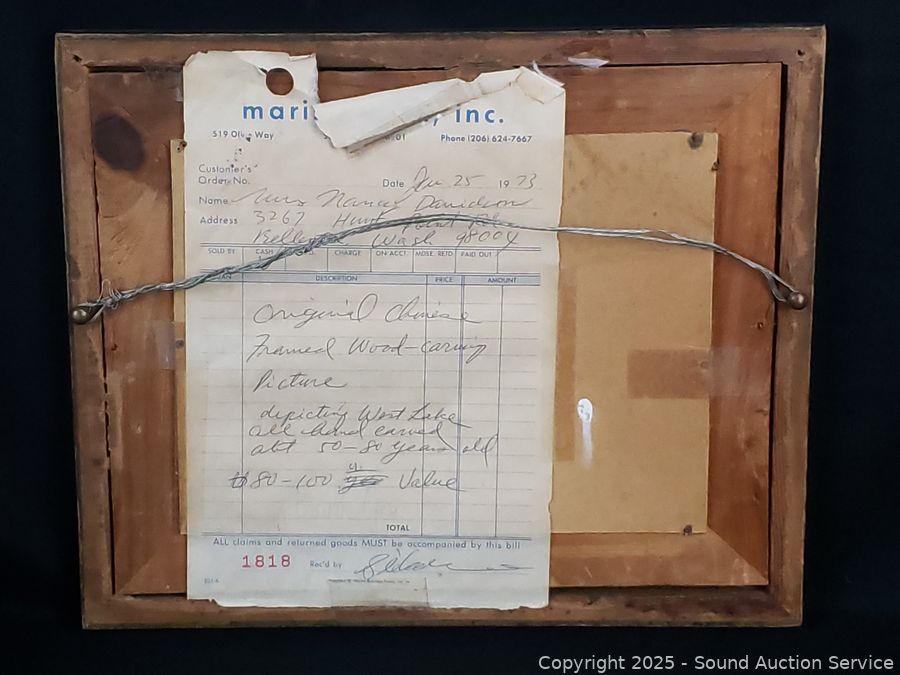 mari , Inc.
519 Olive Way 01 Phone (206) 624-7667
Customer's
Order No. Date Jan 25 1973
Name Mrs Nancy Davidson
Address 3267 Hunt Point Rd
Bellevue Wash 98004
SOLD BY CASH CHARGE ON ACCT. MDSE. RETD. PAID OUT
QUAN. DESCRIPTION PRICE AMOUNT
Original Chinese
Framed Wood-carving
Picture
depicting West Lake
all hand carved
abt 50-80 years old
$80-100 Value
TOTAL
ALL claims and returned goods MUST be accompanied by this bill
1818 Rec'd by
Copyright © 2025 - Sound Auction Service